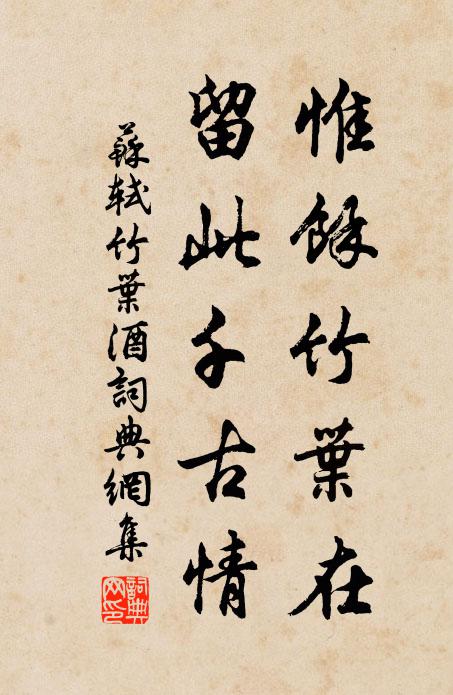 惟餘竹葉在
留此千古情
蘇軾竹葉酒詞典網集
詞典
網印